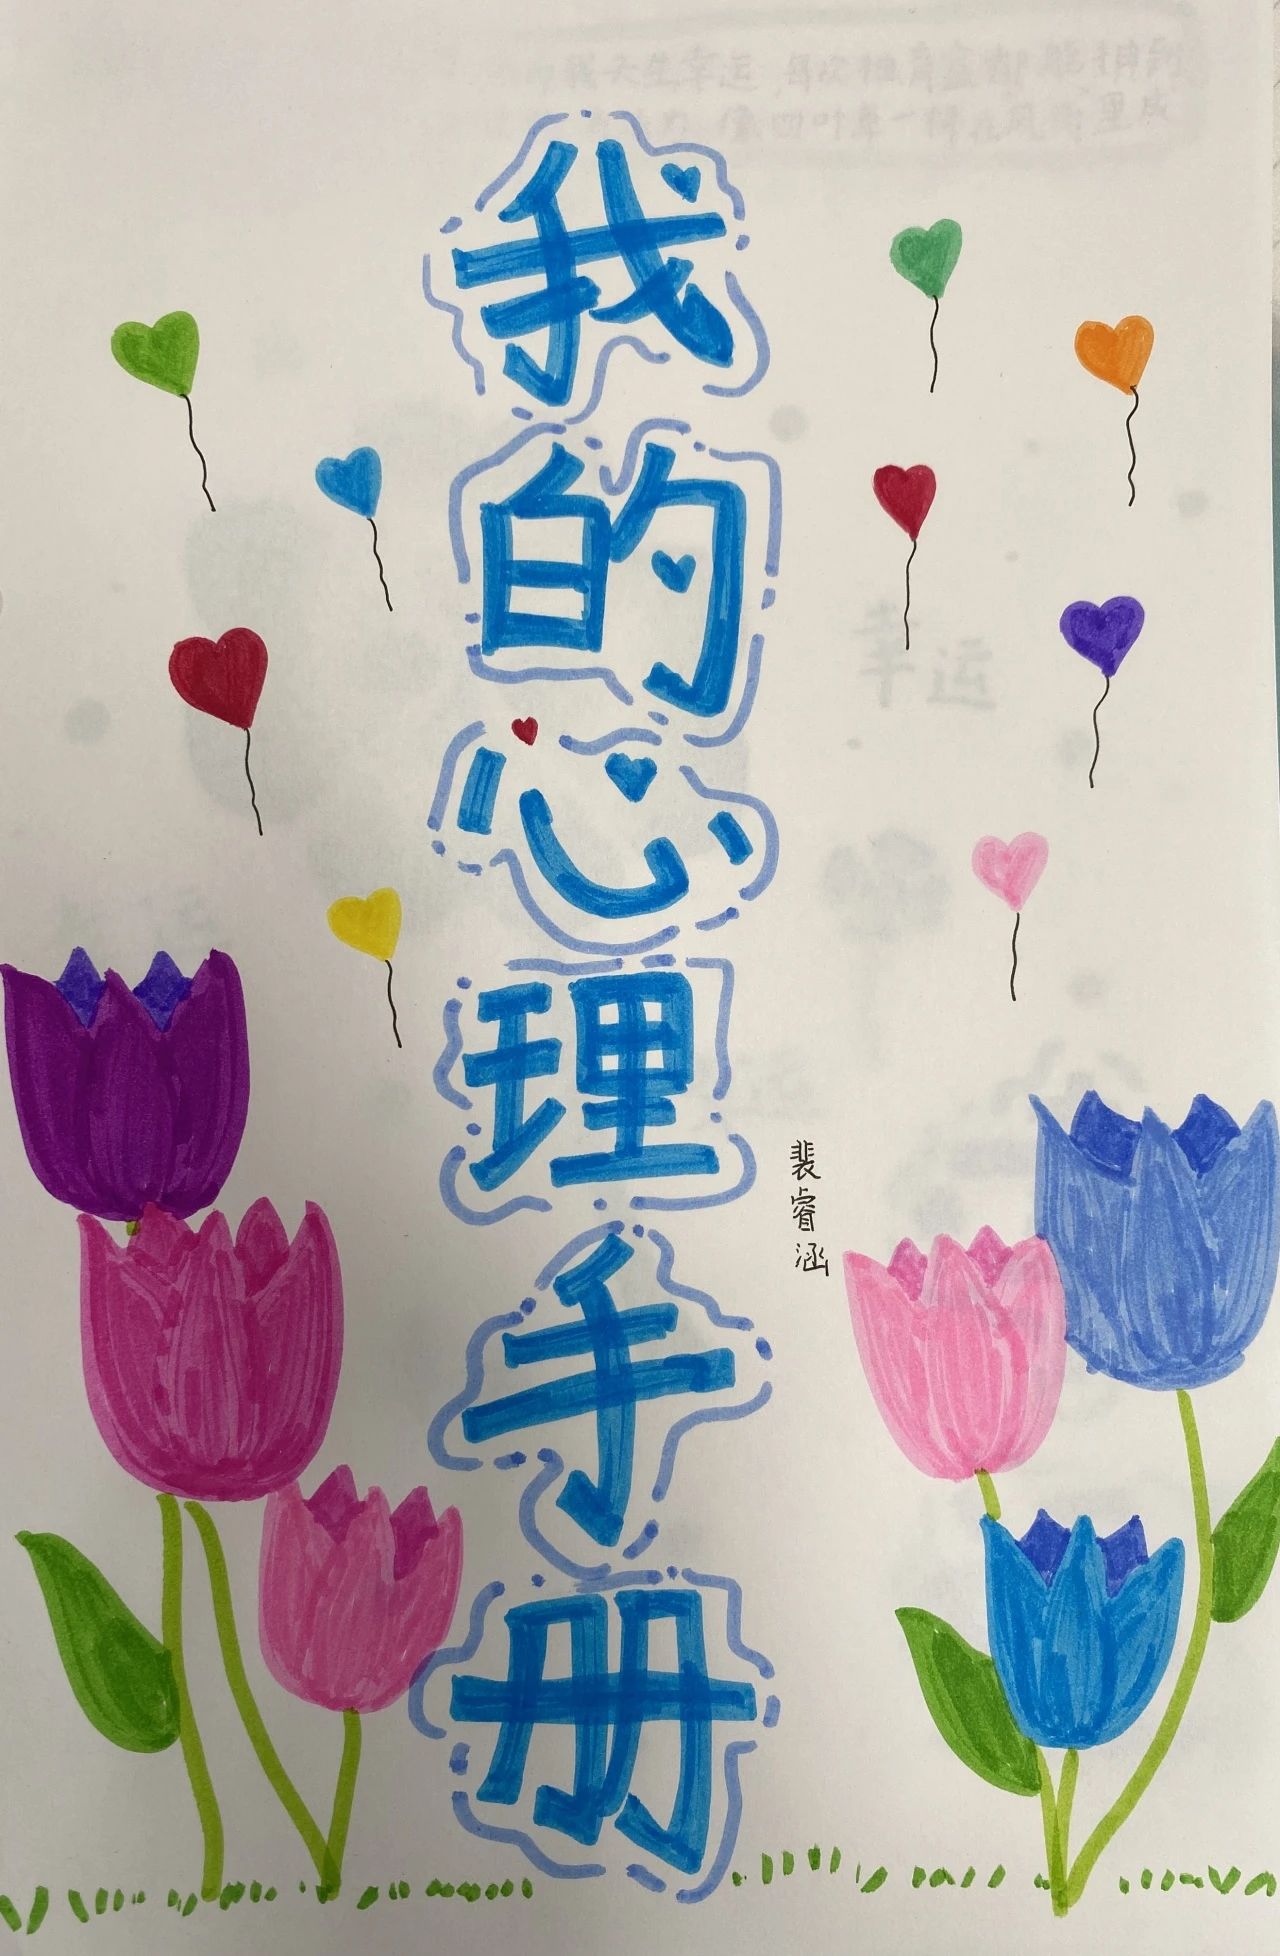 我的心理手册
裴睿涵
幸运